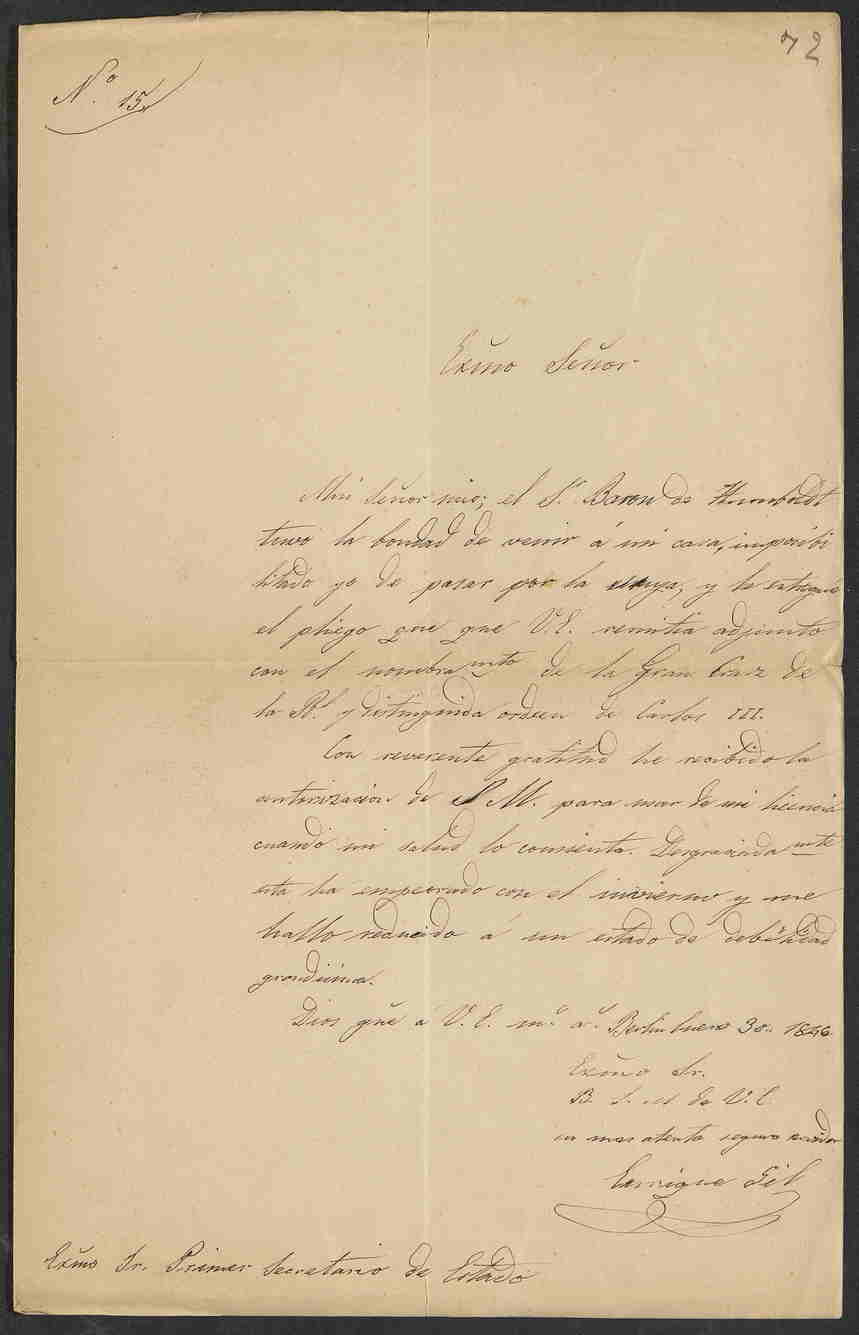 72
Nº 15
Exmo Señor
Muy Señor mio; el Sr. Baron de Humboldt
tuvo la bondad de venir á mi casa, imposibi
litado yo de pasar por la suya, y le entregué
el pliego que que V.E. remitia adjunto
con el nombramto de la Gran Cruz de
la Rl. y distinguida orden de Carlos III.
Con reverente gratitud he recibido la
autorizacion de S.M. para usar de mi licencia
cuando mi salud lo consienta. Desgraciadamte
esta ha empeorado con el invierno y me
hallo reducido á un estado de debilidad
grandisima.
Dios gue á V.E. ms. as. Berlin Enero 30. 1846.
Exmo Sr.
B. L. M. de V.E.
su mas atento seguro servidor
Enrique Gil
Exmo Sr. Primer Secretario de Estado